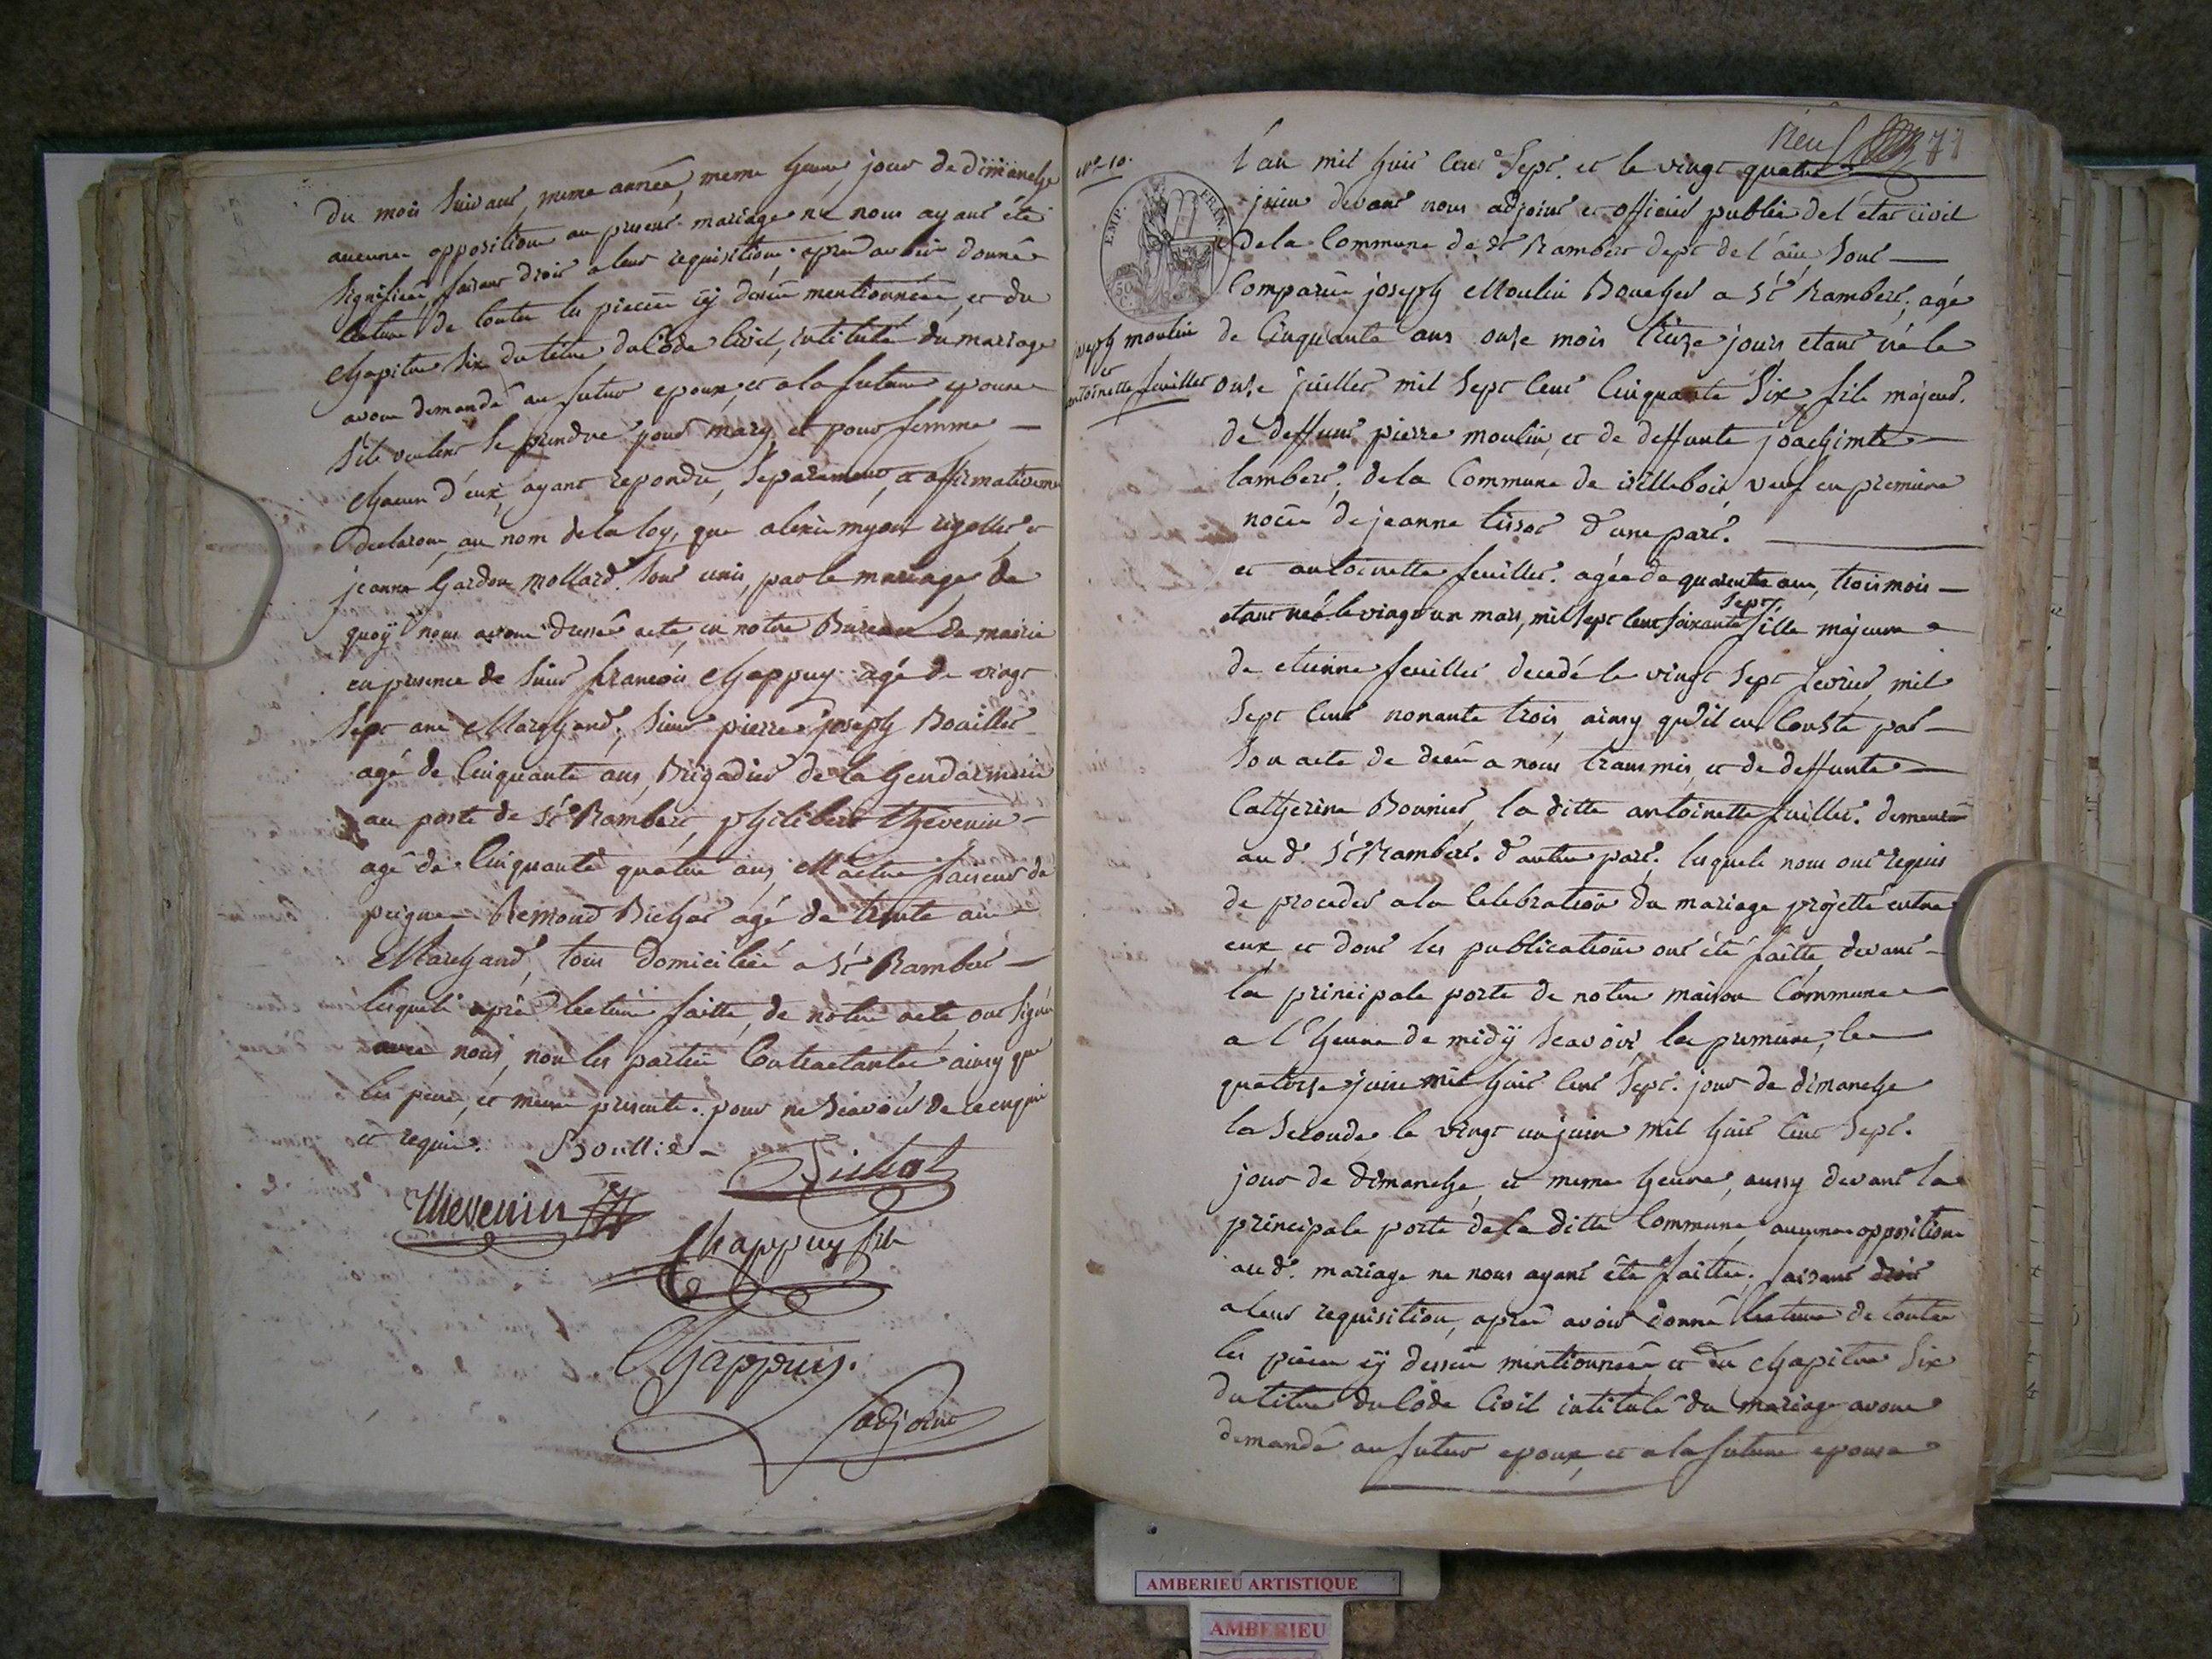 du mois suivant, meme année, meme heure jour de dimanche
aucunes opposition au present mariage ne nous ayant été
signifiée, faisant droit a leur requisition. apres avoir donné
lecture de toutes les pieces cy dessus mentionnées, et du
chapitre six du titre du Code Civil, intitulé du mariage
avons demandé au futur epoux, et a la future epouse
s'ils veulent se prendre pour mary et pour femme —
chacun d'eux, ayant repondu, separement, et affirmativement
declarons, au nom de la loy, que alexis rigollet et
jeanne Gardon mollard sont unis, par le mariage, de
quoÿ nous avons dressé acte, en notre Bureau de mairie
en presence de sieur françois Chappuy agé de vingt
sept ans Marchand, sieur pierre joseph Bouillet
agé de Cinquante ans, Brigadier de la Gendarmerie
au poste de St Rambert, philibert thevenin —
agé de Cinquante quatre ans, Maitre faiseur de
peignes Remond Bichat agé de trente ans
Marchand, tous domiciliés a St Rambert —
lesquels après lecture faitte, de notre acte, ont signés
avec nous, non les parties Contractantes ainsy que
les peres, et meres presents. pour ne scavoir de ce enquis
et requis. Bouillier —
Bichat
Thevenin
Chappuy fils
Chappuis.
adjoint
neuf 71
N° 10.
EMP. FRAN.
50 C.
joseph moulin
et
antoinette feuillet
l'an mil huit Cent Sept. et le vingt quatre
juin devant nous adjoint et officier public de l'état civil
de la Commune de St Rambert dept de l'ain, sont —
Comparus joseph Moulin Boucher a St Rambert, agé
de Cinquante ans onze mois treize jours, etant né le
onze juillet mil sept Cent Cinquante Six fils majeur.
de deffunt pierre moulin, et de deffunte joachimte —
lambert, de la Commune de villebois, veuf en premiere
noces de jeanne tissot d'une part.
et antoinette feuillet. agée de quarante ans, trois mois —
Sept,
etant neé le vingt un mars, mil sept Cent soixante fille majeure
de etienne feuillet decedé le vingt Sept fevrier, mil
Sept Cent nonante trois, ainsy qu'il en Conste par —
son acte de deces a nous transmis, et de deffunte —
Catherine Bonnier, la ditte antoinette feuillet. demeurant
au d. St Rambert. d'autre part. lesquels nous ont requis
de proceder a la Celebration du mariage projetté entre
eux, et dont les publications ont été faitte, devant —
la principale porte de notre maison Commune
a l'heure de midÿ scavoir, la premiere, le
quatorze juin mil huit Cent Sept. jour de dimanche
la Seconde le vingt un juin mil huit Cent Sept.
jour de dimanche, et meme heure, aussy devant la
principale porte de la ditte Commune, aucunes opposition
aud. mariage ne nous ayant été faittes. faisant droit
a leur requisition, après avoir donné lecture de toutes
les pieces cÿ dessus mentionnées, et du chapitre Six
du titre du Code Civil intitulé du mariage avons
demandé au futur epoux, et a la future epouse
AMBERIEU ARTISTIQUE
AMBERIEU